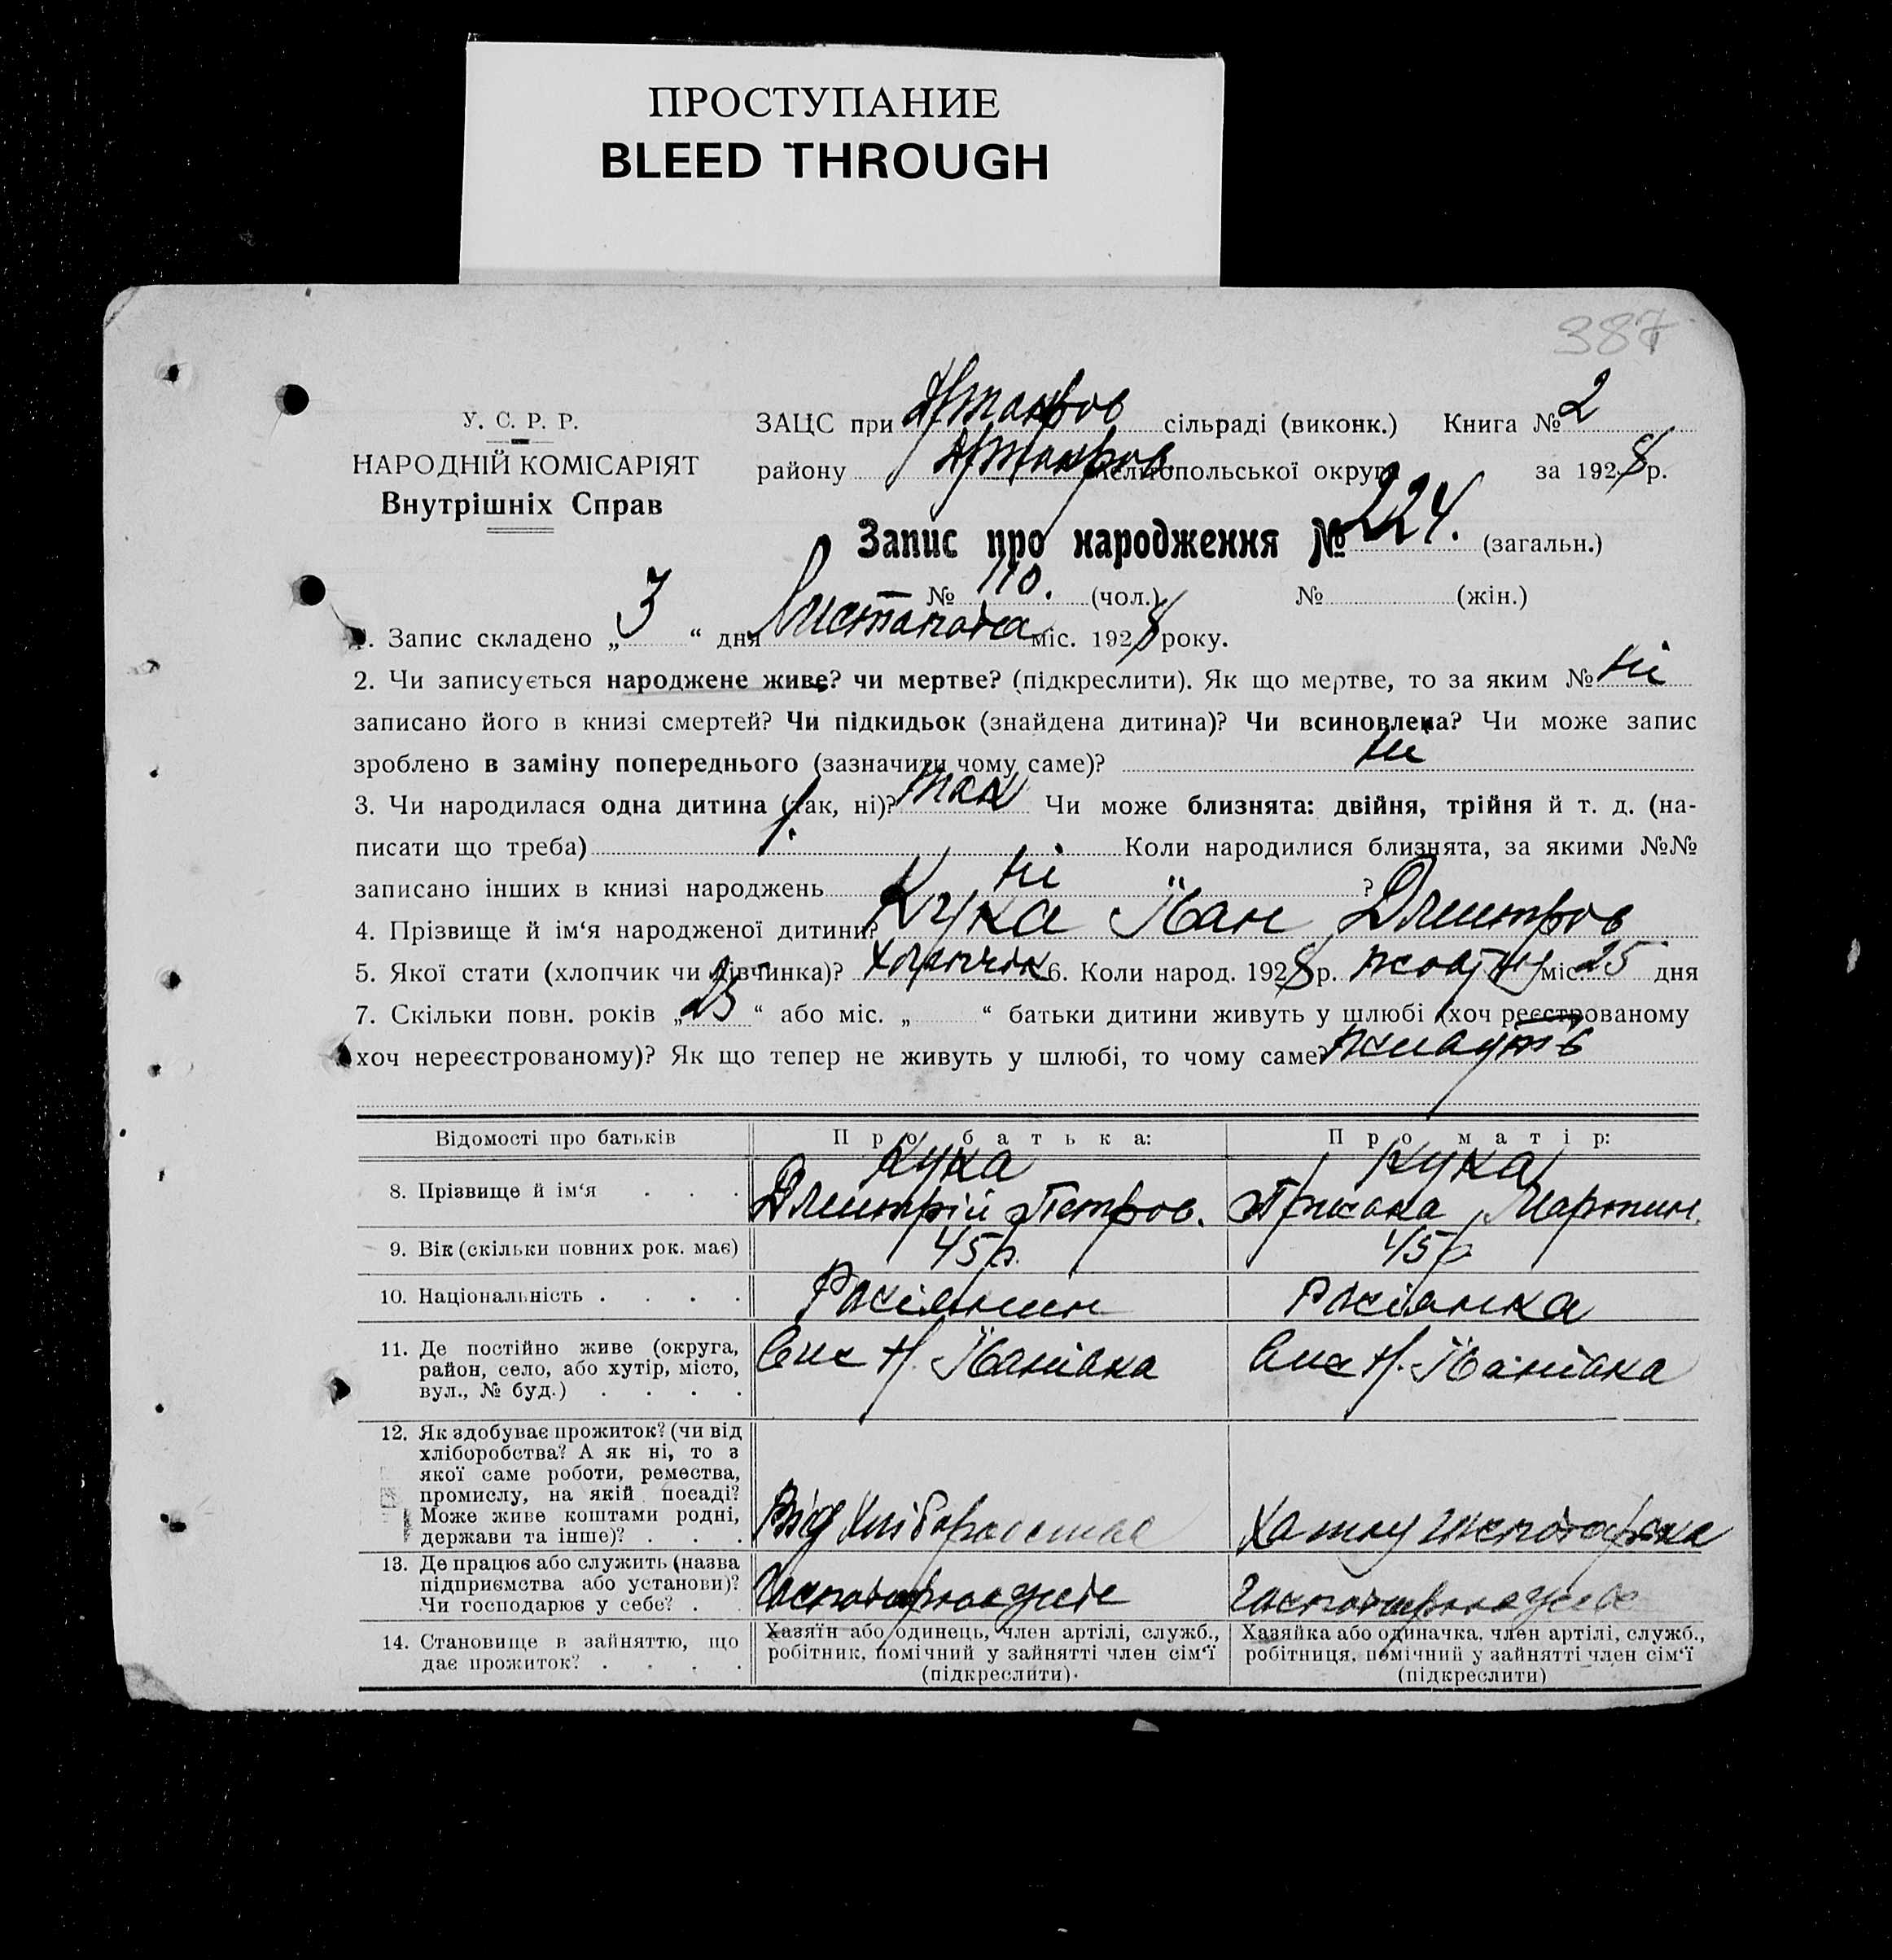 ПРОСТУПАНИЕ
BLEED THROUGH
387
У. С. Р. Р.
НАРОДНІЙ КОМІСАРІЯТ
Внутрішніх Справ
ЗАЦС при сільраді (виконк.) Книга № 2
району Мелітопольської округи за 1928 р.
Запис про народження № 224. (загальн.)
№ 110. (чол.) № (жін.)
1. Запис складено „ 3 “ дня Листопада міс. 1928 року.
2. Чи записується народжене живе? чи мертве? (підкреслити). Як що мертве, то за яким № ні
записано його в книзі смертей? Чи підкидьок (знайдена дитина)? Чи всиновлена? Чи може запис
зроблено в заміну попереднього (зазначити чому саме)? ні
3. Чи народилася одна дитина (так, ні)? так Чи може близнята: двійня, трійня й т. д. (на-
писати що треба) 1. Коли народилися близнята, за якими №№
записано інших в книзі народжень ні ?
4. Прізвище й ім‘я народженої дитини? Кука Їван Дмитров
5. Якої стати (хлопчик чи дівчинка)? хлопчик 6. Коли народ. 1928 р. жовтня міс. 25 дня
7. Скільки повн. років „ 25 “ або міс. „ “ батьки дитини живуть у шлюбі (хоч реєстрованому
хоч нереєстрованому)? Як що тепер не живуть у шлюбі, то чому саме? живуть
Відомості про батьків Про батька: Про матір:
8. Прізвище й ім‘я . . . Кука Дмитрій Петров. Кука
9. Вік (скільки повних рок. має) 45 р. 45 р
10. Національність . . . . Росіянин Росіянка
11. Де постійно живе (округа,
район, село, або хутір, місто,
вул., № буд.) . . . . Н. Їванівка Н. Їванівка
12. Як здобуває прожиток? (чи від
хліборобства? А як ні, то з
якої саме роботи, ремества,
промислу, на якій посаді?
Може живе коштами родні,
держави та інше)? . . . Від Хліборобства Хатня господарка
13. Де працює або служить (назва
підприємства або установи)?
Чи господарює у себе? .
14. Становище в зайняттю, що
дає прожиток? . . . .
Хазяїн або одинець, член артілі, служб.,
робітник, помічний у зайнятті член сім‘ї
(підкреслити).
Хазяйка або одиначка, член артілі, служб.,
робітниця, помічний у зайнятті член сім‘ї
(підкреслити)